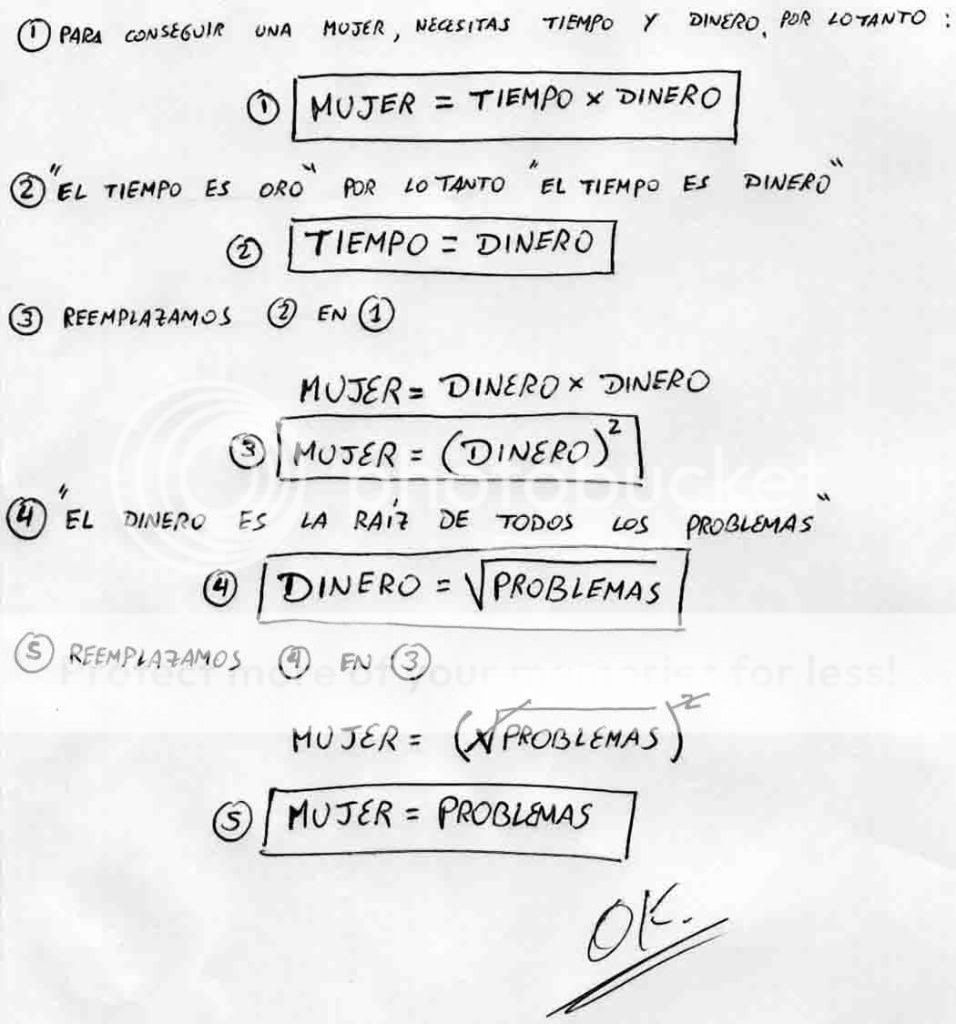 ① PARA CONSEGUIR UNA MUJER, NECESITAS TIEMPO Y DINERO, POR LO TANTO:
① MUJER = TIEMPO × DINERO
② "EL TIEMPO ES ORO" POR LO TANTO "EL TIEMPO ES DINERO"
② TIEMPO = DINERO
③ REEMPLAZAMOS ② EN ①
MUJER = DINERO × DINERO
③ MUJER = (DINERO)²
photobucket
④ "EL DINERO ES LA RAÍZ DE TODOS LOS PROBLEMAS"
④ DINERO = √PROBLEMAS
⑤ REEMPLAZAMOS ④ EN ③
Protect more of your memories for less!
MUJER = (√PROBLEMAS)²
⑤ MUJER = PROBLEMAS
OK.